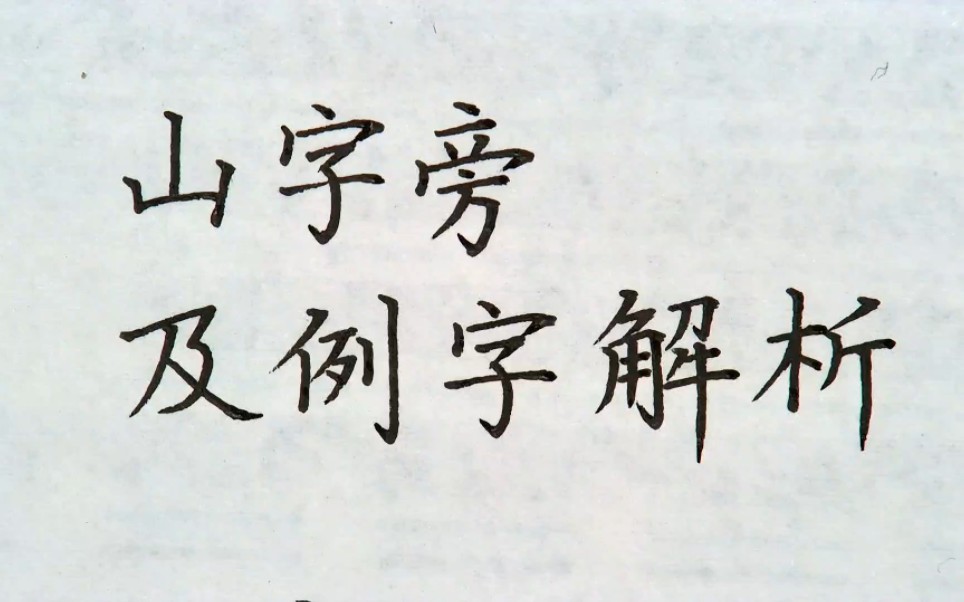 山字旁
及例字解析